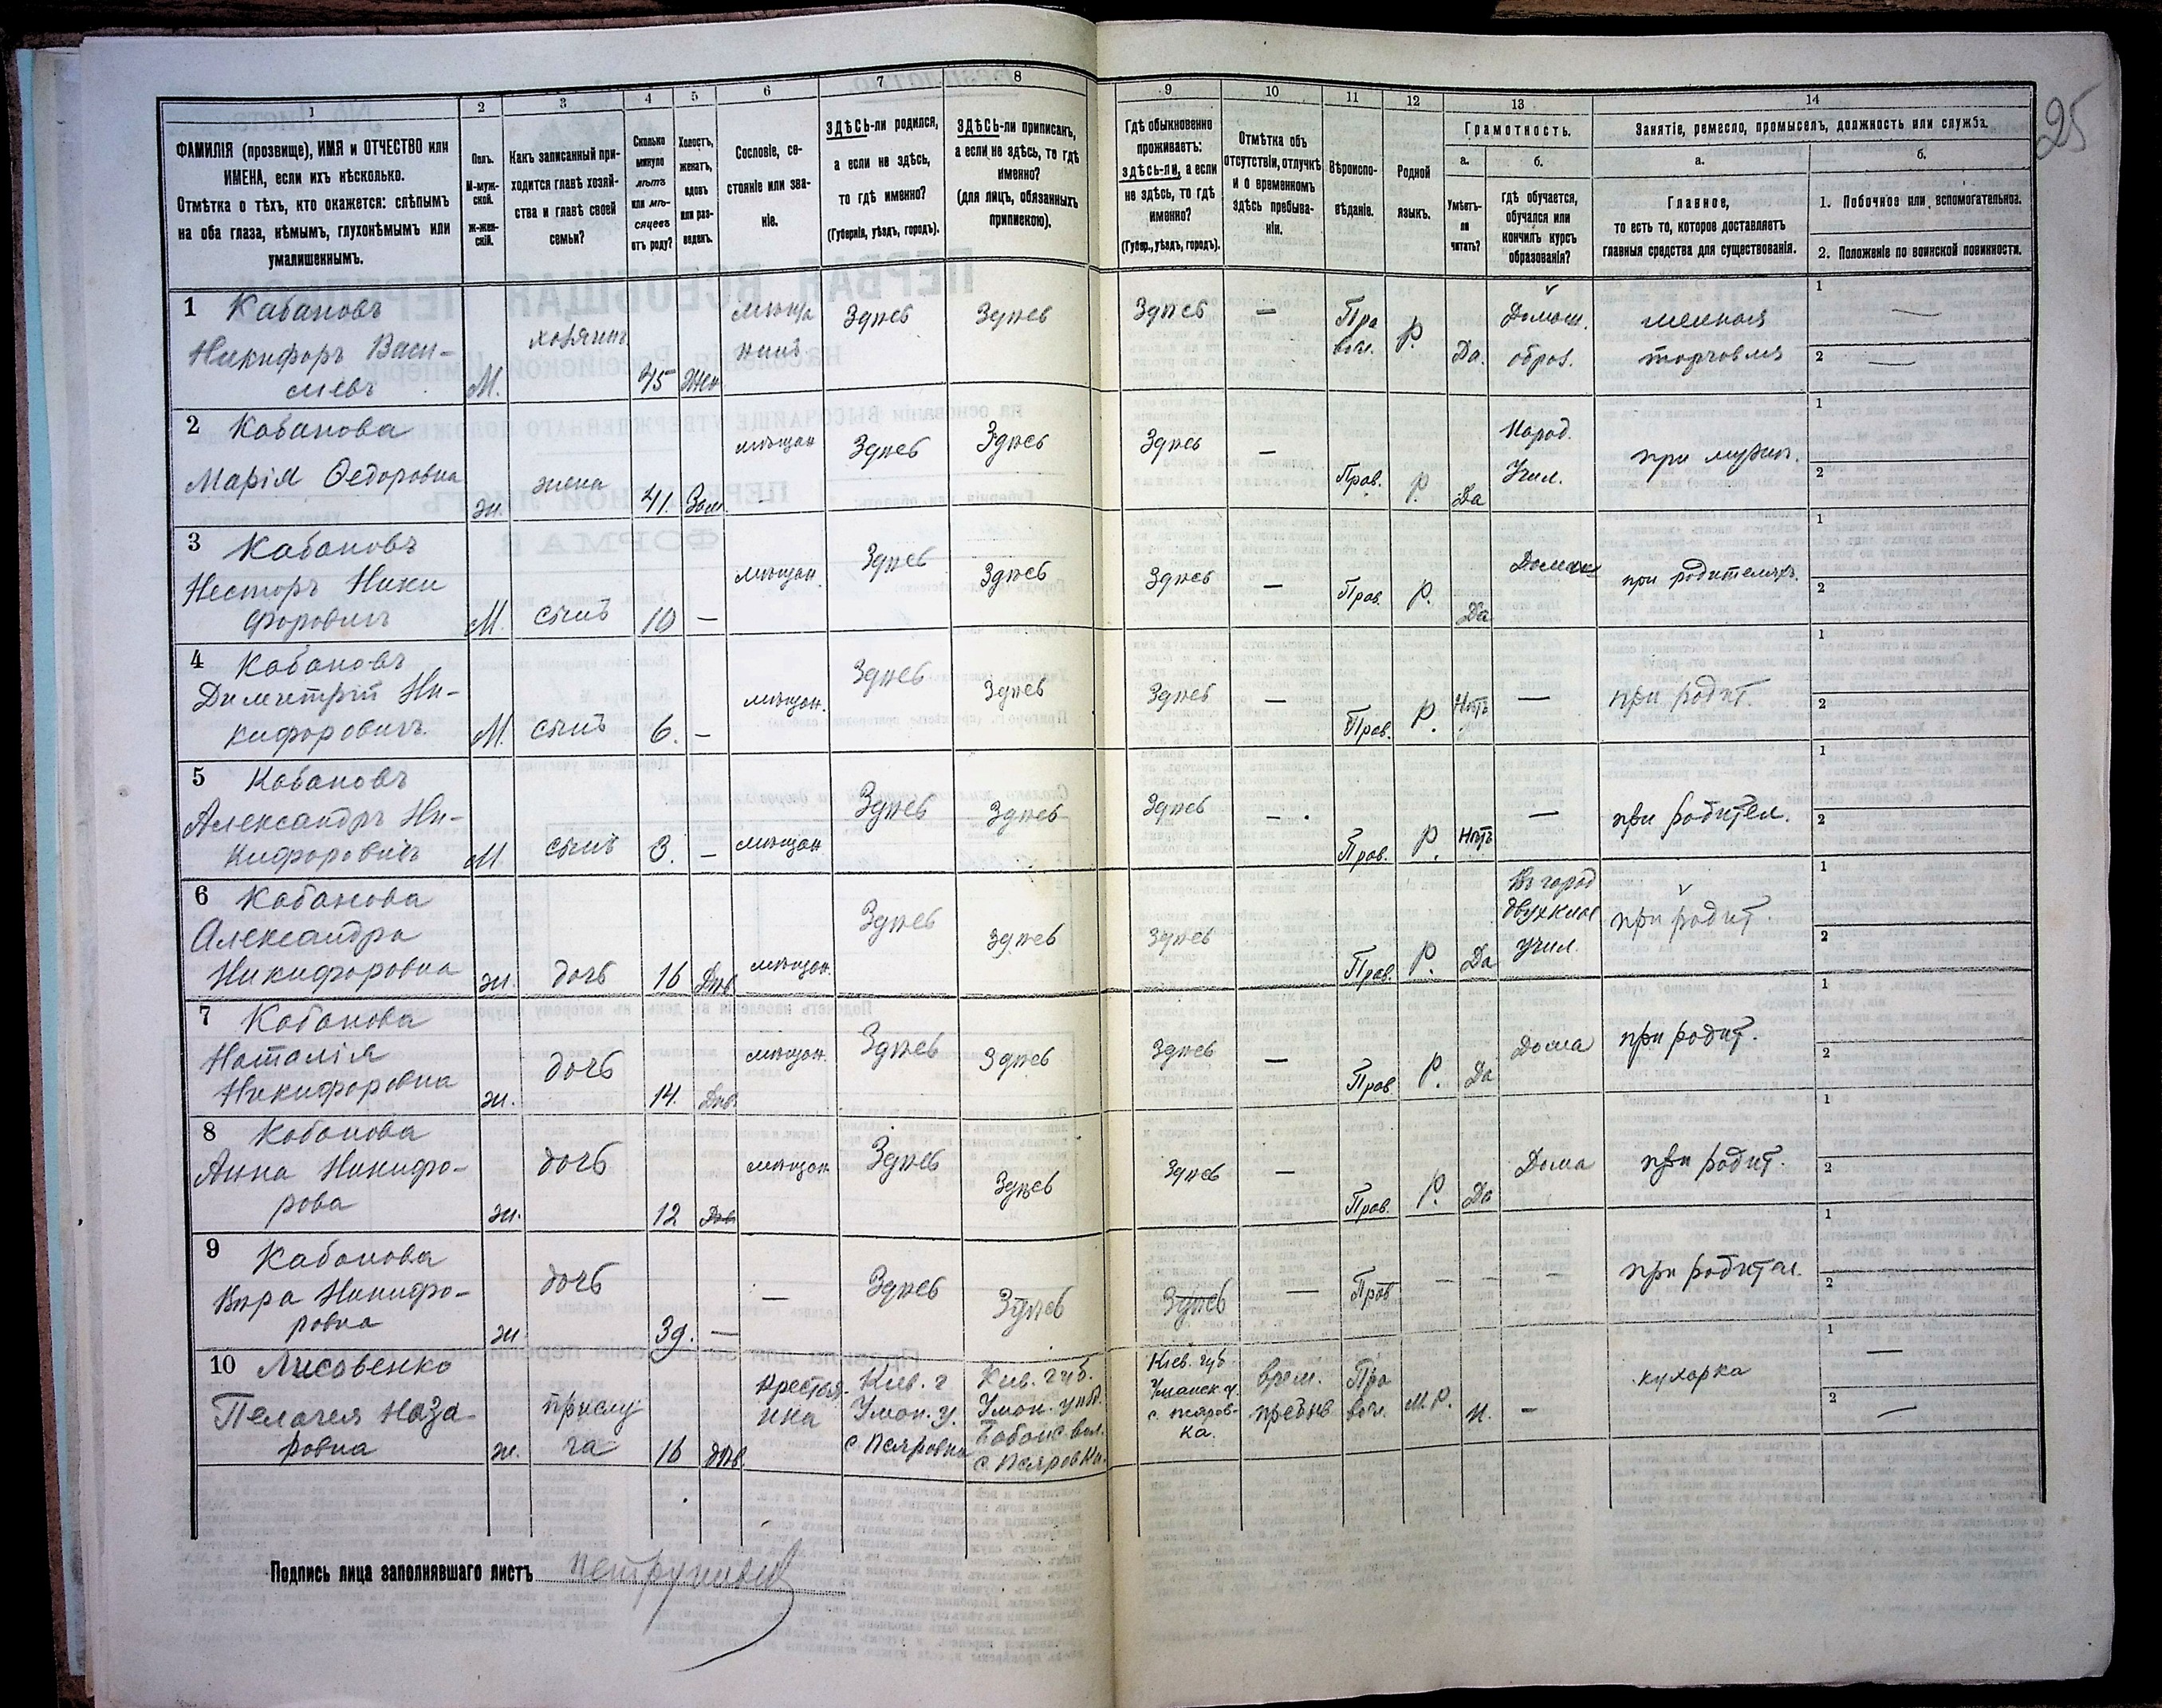 25
1 2 3 4 5 6 7 8 9 10 11 12 13 14
ФАМИЛІЯ (прозвище), ИМЯ и ОТЧЕСТВО или
ИМЕНА, если ихъ нѣсколько.
Отмѣтка о тѣхъ, кто окажется: слѣпымъ
на оба глаза, нѣмымъ, глухонѣмымъ или
умалишеннымъ.
Полъ.
М-муж-
ской.
Ж-жен-
скій.
Какъ записанный при-
ходится главѣ хозяй-
ства и главѣ своей
семьи?
Сколько
минуло
лѣтъ
или мѣ-
сяцевъ
отъ роду?
Холостъ,
женатъ,
вдовъ
или раз-
веденъ.
Сословіе, со-
стояніе или зва-
ніе.
ЗДѢСЬ-ли родился,
а если не здѣсь,
то гдѣ именно?
(Губернія, уѣздъ, городъ).
ЗДѢСЬ-ли приписанъ,
а если не здѣсь, то гдѣ
именно?
(для лицъ, обязанныхъ
припискою).
Гдѣ обыкновенно
проживаетъ:
здѣсь-ли, а если
не здѣсь, то гдѣ
именно?
(Губер., уѣздъ, городъ).
Отмѣтка объ
отсутствіи, отлучкѣ
и о временномъ
здѣсь пребыва-
ніи.
Вѣроиспо-
вѣданіе.
Родной
языкъ.
Грамотность.
а.
Умѣетъ-
ли
читать?
б.
гдѣ обучается,
обучался или
кончилъ курсъ
образованія?
Занятіе, ремесло, промыселъ, должность или служба.
а.
Главное,
то есть то, которое доставляетъ
главныя средства для существованія.
б.
1. Побочное или вспомогательное.
2. Положеніе по воинской повинности.
1 Кабановъ
Никифоръ Васи-
льевъ
М.
хозяинъ
45
Жен
мѣща
нинъ
Здѣсь
Здѣсь
Здѣсь
—
Пра
восл.
Р.
Да.
Домаш.
образ.
мелкая
торговля
1 —
2 —
2 Кабанова
Марія Федоровна
ж.
жена
41.
Зам.
мѣщан
Здѣсь
Здѣсь
Здѣсь
—
Прав.
Р.
Да
Народ.
Учил.
при мужѣ.
1
2
3 Кабановъ
Несторъ Ники
форовичъ
М.
сынъ
10
—
мѣщан.
Здѣсь
Здѣсь
Здѣсь
—
Прав.
Р.
Да
при родителяхъ.
1
2
4 Кабановъ
Димитрій Ни-
кифоровичъ.
М.
сынъ
6.
—
мѣщан.
Здѣсь
Здѣсь
Здѣсь
—
Прав.
Р.
Нѣтъ
—
при родит.
1
2
5 Кабановъ
Александръ Ни-
кифоровичъ
М
сынъ
3.
—
мѣщан
Здѣсь
Здѣсь
Здѣсь
—
Прав.
Р.
Нѣтъ
—
при родител.
1
2
6 Кабанова
Александра
Никифоровна
ж.
дочь
16
Дѣв.
мѣщан.
Здѣсь
Здѣсь
Здѣсь
Прав.
Р.
Да
Въ город
двухклас
учил.
при родит.
1
2
7 Кабанова
Наталія
Никифоровна
ж.
дочь
14.
Дѣв.
мѣщан.
Здѣсь
Здѣсь
Здѣсь
—
Прав
Р.
Да
Дома
при родит.
1
2
8 Кабанова
Анна Никифо-
рова
ж.
дочь
12
Дѣв
мѣщан
Здѣсь
Здѣсь
Здѣсь
—
Прав.
Р.
Да
Дома
при родит.
1
2
9 Кабанова
Вѣра Никифо-
ровна
ж
дочь
3д.
—
—
Здѣсь
Здѣсь
Здѣсь
—
Прав
—
—
—
при родител.
1
2
10 Лисовенко
Пелагея Наза
ровна
ж.
прислу
га
16
дѣв.
крестья-
нка
Кіев. г
Уман. у.
с. Псяровка
Кіев. губ.
Уман. уѣзд.
Бабанс. вол.
с. Псяровка.
Кіев. губ.
Уманск. у.
с. Псяров-
ка.
врем.
пребыв
Пра
восл.
М.Р.
Н.
—
кухарка
1 —
2 —
Подпись лица заполнявшаго листъ